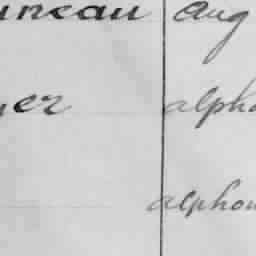 uncan Aug
yer alpho
alphon